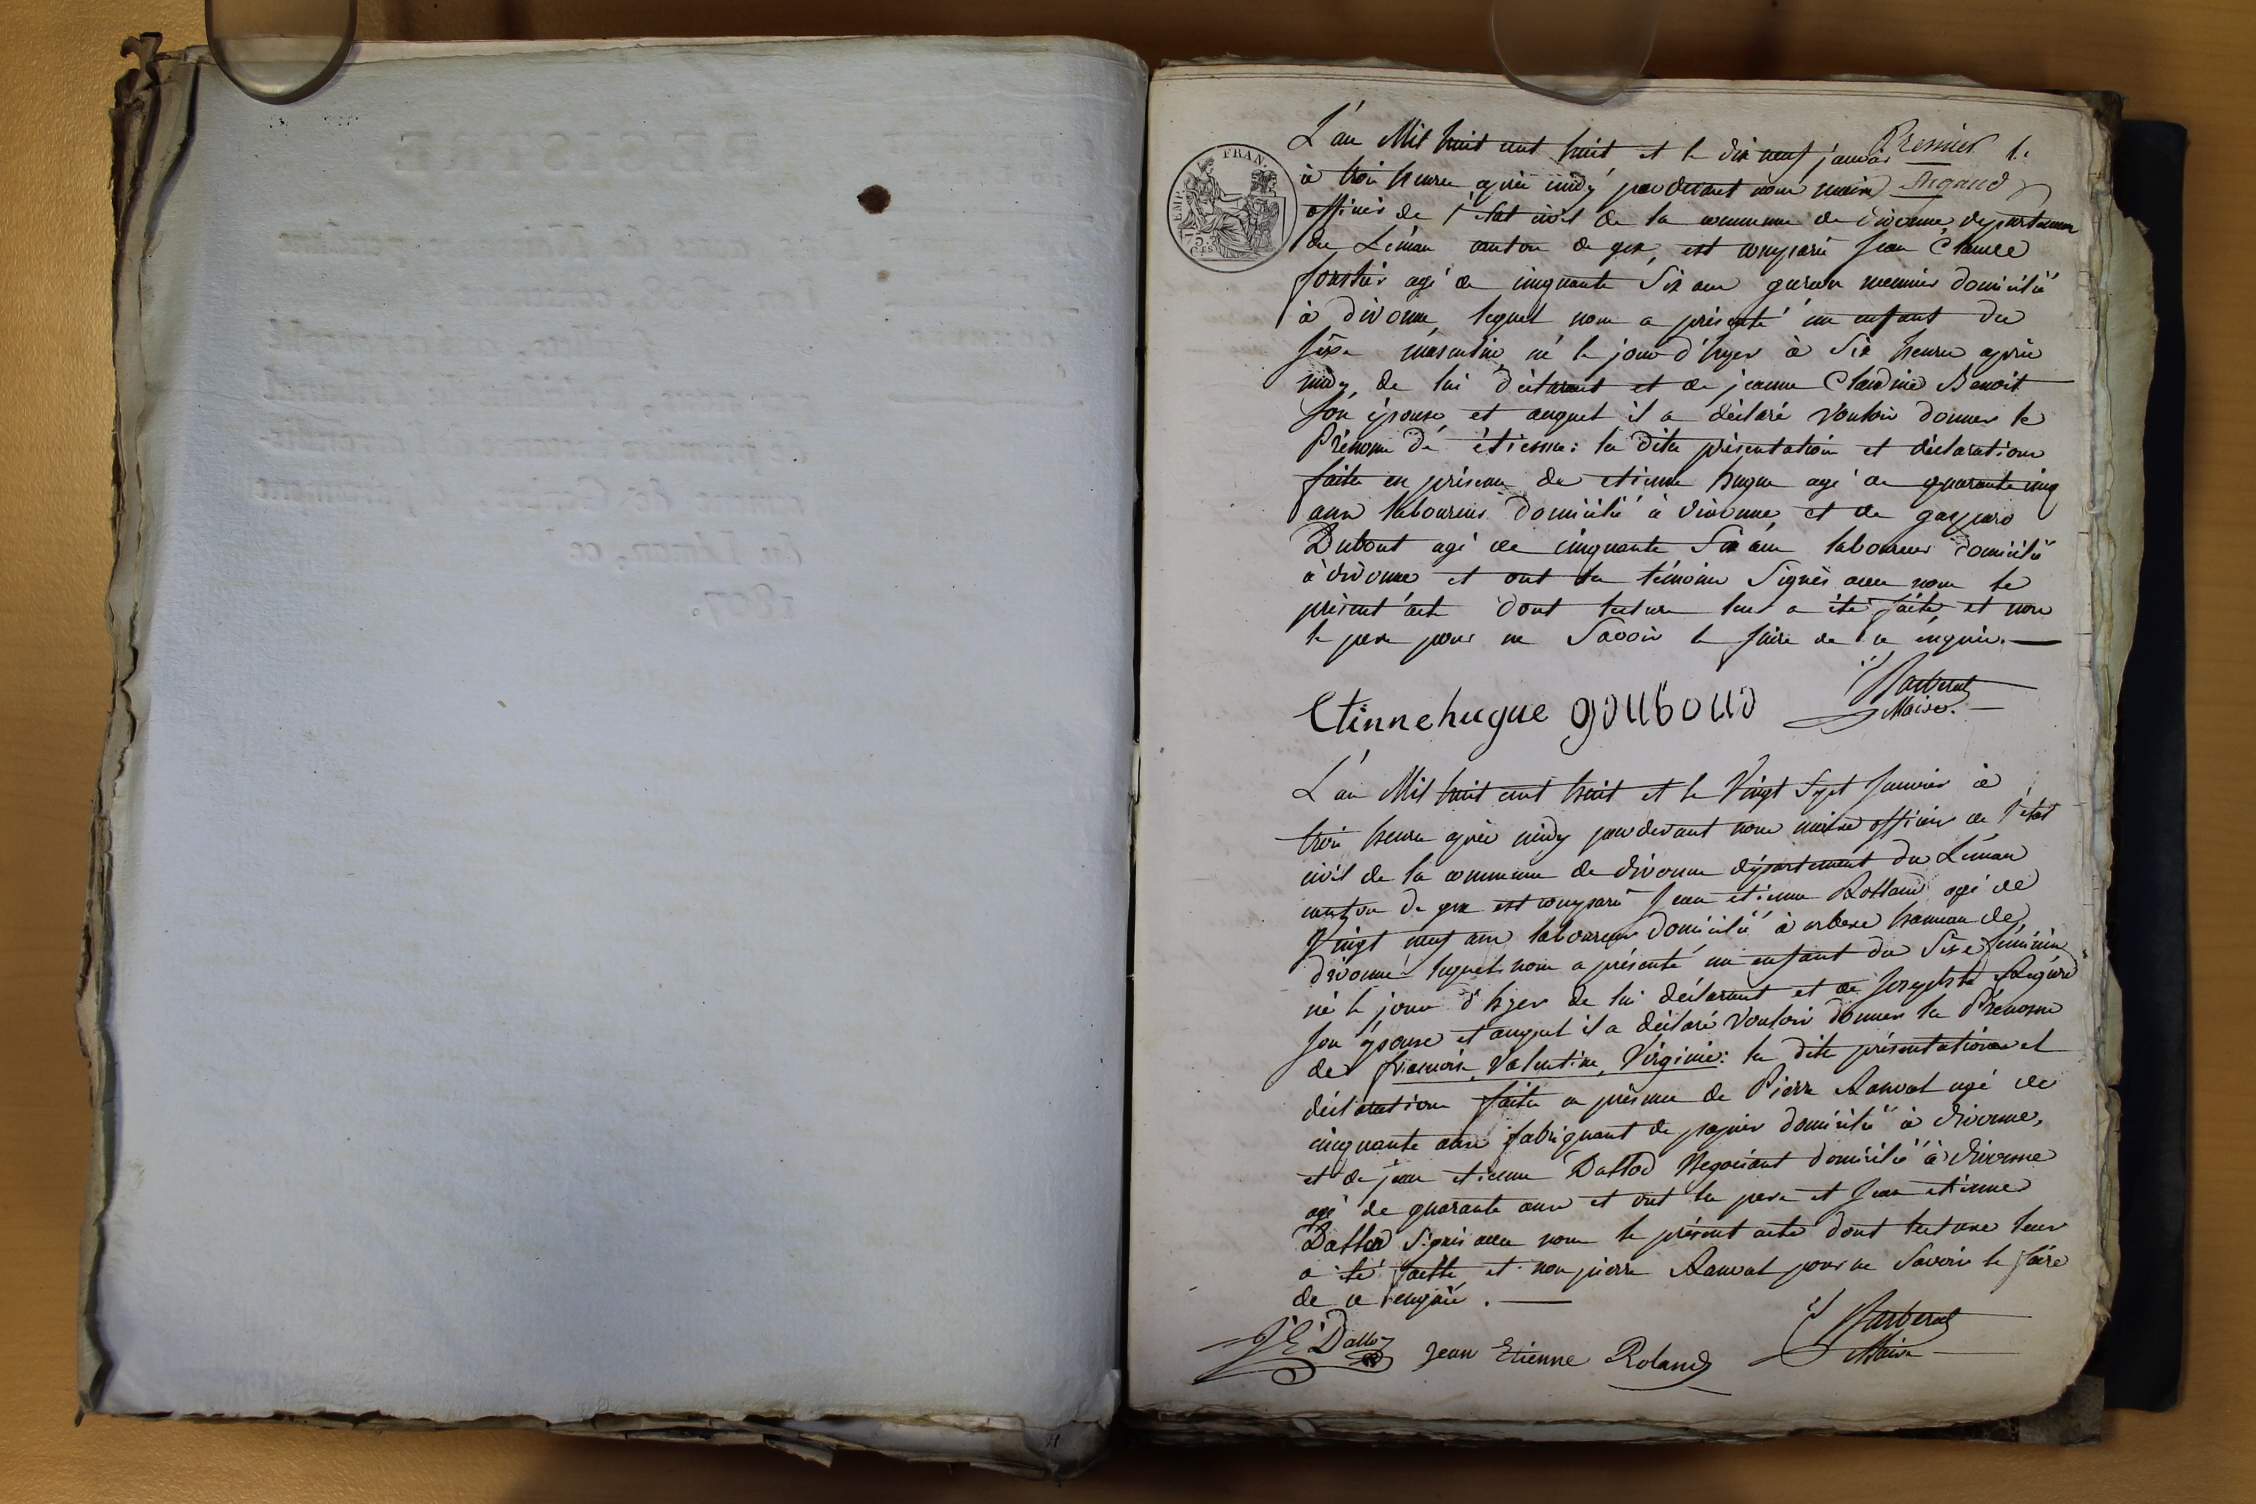 Premier
L'an Mil huit cent huit et le dix neuf janvier
à trois heures après midy pardevant nous maire
officier de l'état civil de la commune de divonne, departement
du Léman canton de gex, est comparu Jean Claude
forestier agé de cinquante Six ans garcon meunier domicilié
à divonne, lequel nous a présenté un enfant du
sèxe masculin, né le jour d'hyer à Six heures après
midy, de lui déclarant et de jeanne Claudine Benoit
son épouse, et auquel il a déclaré vouloir donner le
Prénom de étienne: la dite présentation et déclaration
faite en présence de etienne hugue agé de quarante cinq
ans laboureur domicilié à divonne et de gaspard
Dubout agé de cinquante Six ans laboureur domicilié
à divonne et ont les témoins Signés avec nous le
présent acte dont lecture leur a été faite et non
le pere pour ne Savoir le faire de ce enquis.
Etinnehugue
Maire.
L'an Mil huit cent huit et le Vingt Sept Janvier à
trois heures après midy pardevant nous maire officier de l'état
civil de la commune de divonne département du Léman
canton de gex est comparu Jean etienne Rolland agé de
Vingt neuf ans laboureur domicilié à arbere hameau de
divonne lequel nous a présenté un enfant du Sexe féminin
né le jour d'hyer de lui déclarant et de Josephte
son épouse et auquel il a déclaré Vouloir donner les Prénoms
de françoise, Valentine, Virginie: la dite présentation et
déclaration faite en présence de Pierre agé de
cinquante ans fabriquant de papier domicilié à divonne,
et de jean etienne Dallod Negociant domicilié à divonne
agé de quarante ans et ont le pere et Jean etienne
Dallod Signés avec nous le présent acte dont lecture leur
a été faitte, et non pierre pour ne Savoir le faire
de ce enquis.
J E Dalloz Jean Etienne Roland
Maire